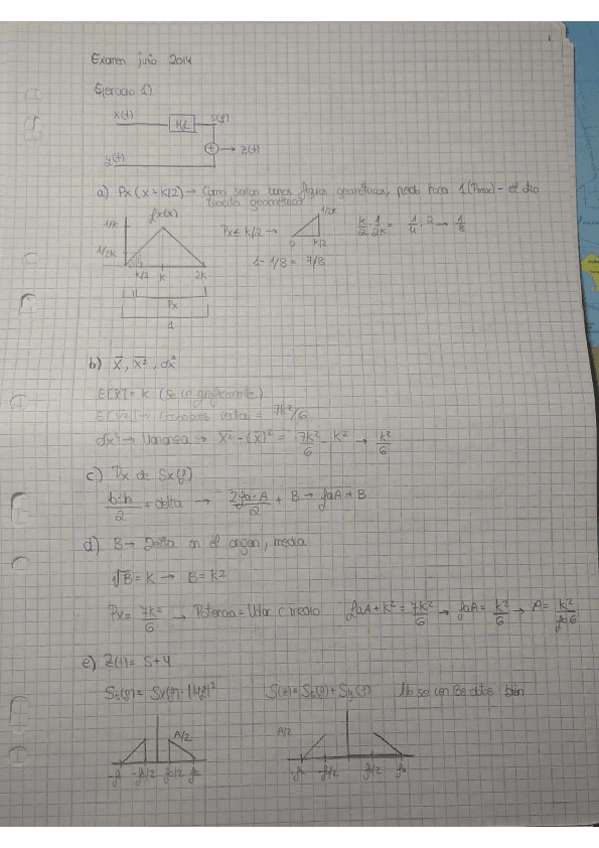 Examen junio 2014
Ejercicio 1)
x(t) H1 S(f)
y(t) z(t)
a) Px(x>k/2) → Como son figura geométrica, puedo hacer 1 (Pmax) - el
geométrico
1/k fx(x)
1/2k
k/2 k 2k
Px
1
Px≤ k/2 →
1/2k
0 k/2
k/2 · 1/2k = 1/4 : 2 → 1/8
1 - 1/8 = 7/8
b) X̄, X̄², dx²
E[X] = k (se ve gráficamente)
= 7k²/6
dx² → Varianza → X̄² - (X̄)² = 7k²/6 - k² → k²/6
c) Px de Sx(f)
b·h/2 + delta → 2fa·A/2 + B → faA + B
d) B → Delta en el origen, media
√B = K → B = k2
Px = 7k²/6 → Potencia = Valor c medio faA + k² = 7k²/6 → faA = k²/6 → A = k²/fa6
e) Z(t) = S + Y
Ss(f) = Sx(f) · |H(f)|² S(z) = Ss(f) + Sy(f) No se con
A/2
-fa -fa/2 fa/2 fa
A/2
-fa -fa/2 fa/2 fa